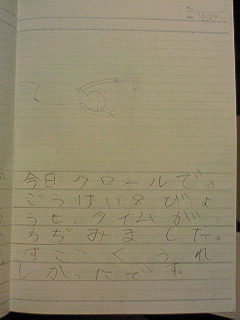 今日クロールで、
ごうけい8びょ
うも、タイムが
ちぢみました。
すごくうれ
しかったです。